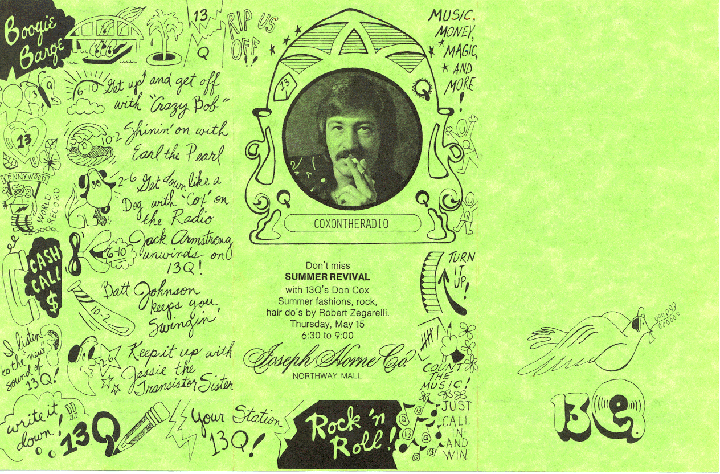 Boogie
Barge
13
Q
RIP US
OFF!
MUSIC,
MONEY,
MAGIC,
AND
MORE
!
6-10 Get up! and get off
with "Crazy Bob"
10-2 Shinin' on with
Earl the Pearl
2-6 Get down like a
Dog with "Cox" on
the Radio
6-10 Jack Armstrong
unwinds on
13Q!
10-2 Batt Johnson
keeps you
Swingin'
Keep it up with
Jessie the
Transistor Sister
13
WORLD
RECORD
CASH
CALL
$
I listen
to the new
sound of
13Q!
write it
down!
13Q
Your Station
13Q!
13
Q
Q
Q
COXONTHERADIO
Don't miss
SUMMER REVIVAL
with 13Q's Don Cox
Summer fashions, rock,
hair do's by Robert Zegarelli.
Thursday, May 15
6:30 to 9:00
Joseph Horne Co
NORTHWAY MALL
TURN
IT
UP!
COUNT
THE
MUSIC!
JUST
CALL
IN
AND
WIN
Rock 'n
Roll!
13Q